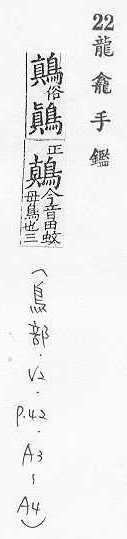 22龍龕手鑑
鷏俗鷆正鷏今音田蚊母鳥也三
(鳥部.V2.P.42.A3-A4)